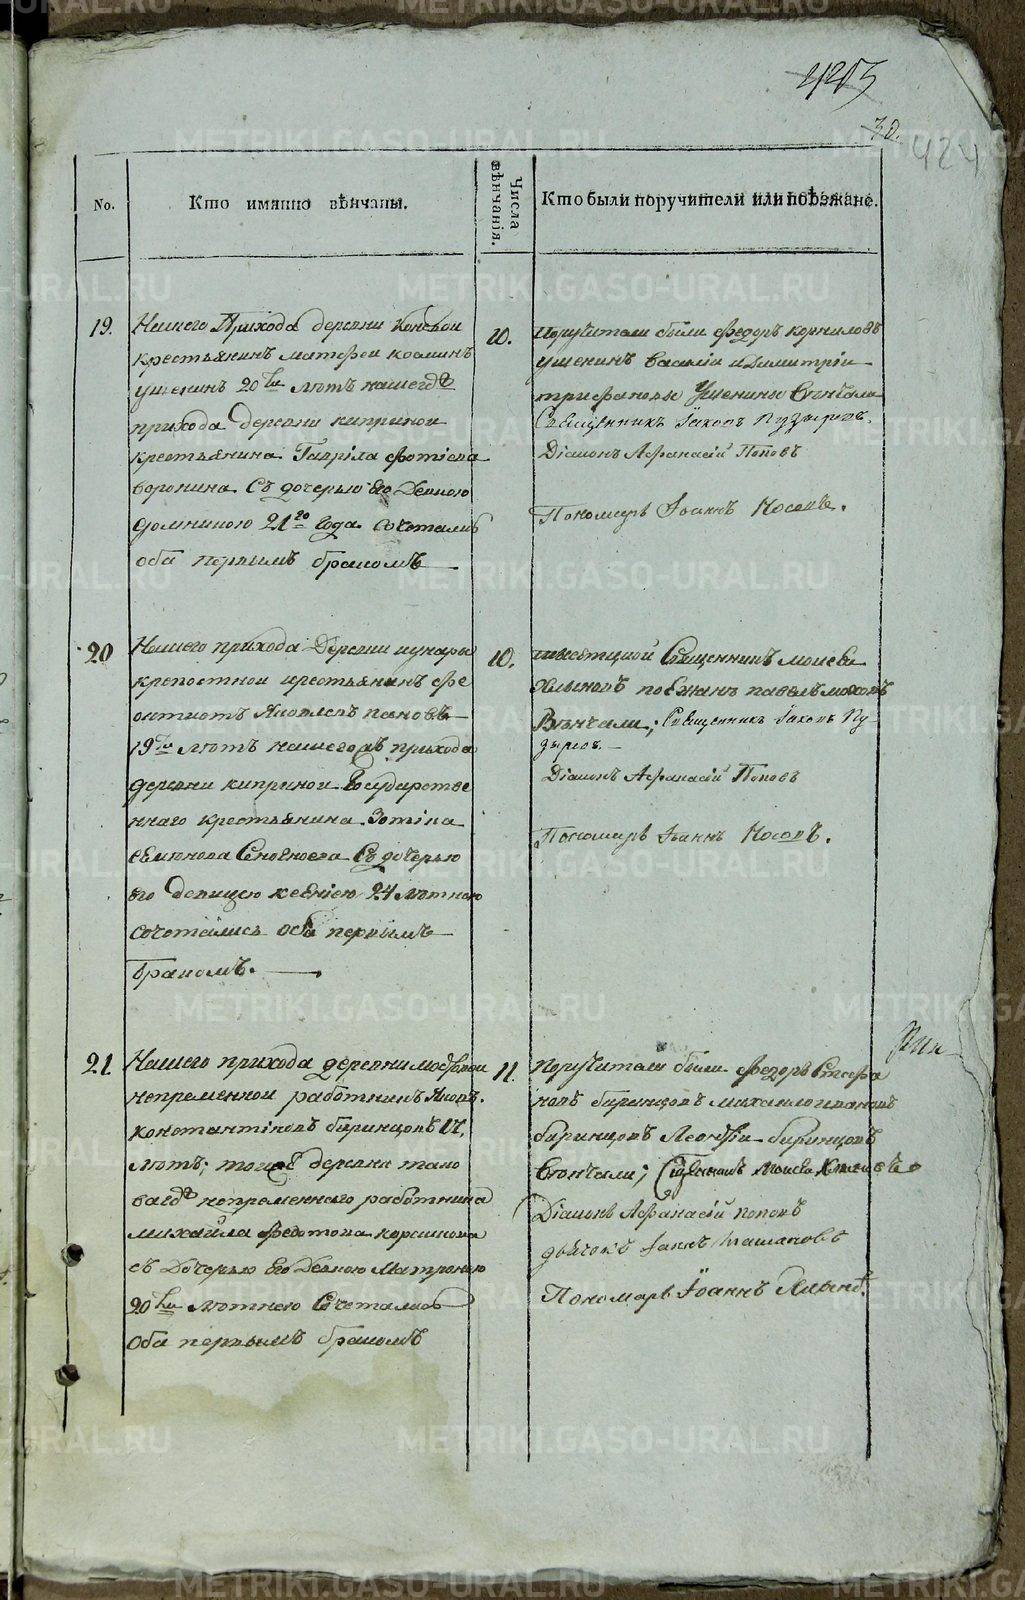 4205
30.
424
No.
Кто имянно вѣнчаны.
Числа вѣнчанія.
Кто были поручители или поѣзжане.
19.
Нашего Прихода деревни
крестьянинъ матфеи козминъ
ушенинъ 20ти лѣтъ нашегожъ
прихода деревни киприной
крестьянина Гаврила фотіева
воронина Съ дочерью Его Девкою
домниною 21го Года сочетались
оба первымъ бракомъ
10.
Поручители были федоръ корниловъ
ушенинъ василіи идимитріи
трифановы Ушенины Вѣнчали
Священникъ Іаковъ Пузыревъ.
Діаконъ Афанасій Поповъ
Пономарь Іоаннъ Носовъ.
20
Нашего прихода Деревни
крепостнои крестьянинъ фе
октистъ Яковлевъ пановъ
19ти лѣтъ нашегожъ прихода
деревни киприной Государстве
ннаго крестьянина Зотіка
семенова Съ дочерью
его девицею ксѣніею 24 лѣтною
сочетались оба первымъ
бракомъ.
10.
Священникъ моисеи
Хлыновъ поѣзжанъ павелъ
Вѣнчали; Священникъ Іаковъ Пу
зыревъ.
Діаконъ Афанасій Поповъ
Пономарь Іоаннъ Носовъ.
21.
Нашего прихода деревни
непременнои работникъ Яковъ
константіновъ биринцовъ 17,
лѣтъ; тоиже деревни тако
вагожъ непременнаго работника
михаила федотова
съ Дочерью Его Девкою Матроною
20ти лѣтнею Сочетались
Оба первымъ бракомъ
11.
Поручители были федоръ Стефа
новъ биринцовъ михаило ивановъ
биринцовъ Леонтіи биринцовъ
Вѣнчали; Священникъ Моисеи Хлыновъ
Діаконъ Афанасій поповъ
дьячокъ
Пономарь Іоаннъ Хлыновъ
METRIKI.GASO-URAL.RU